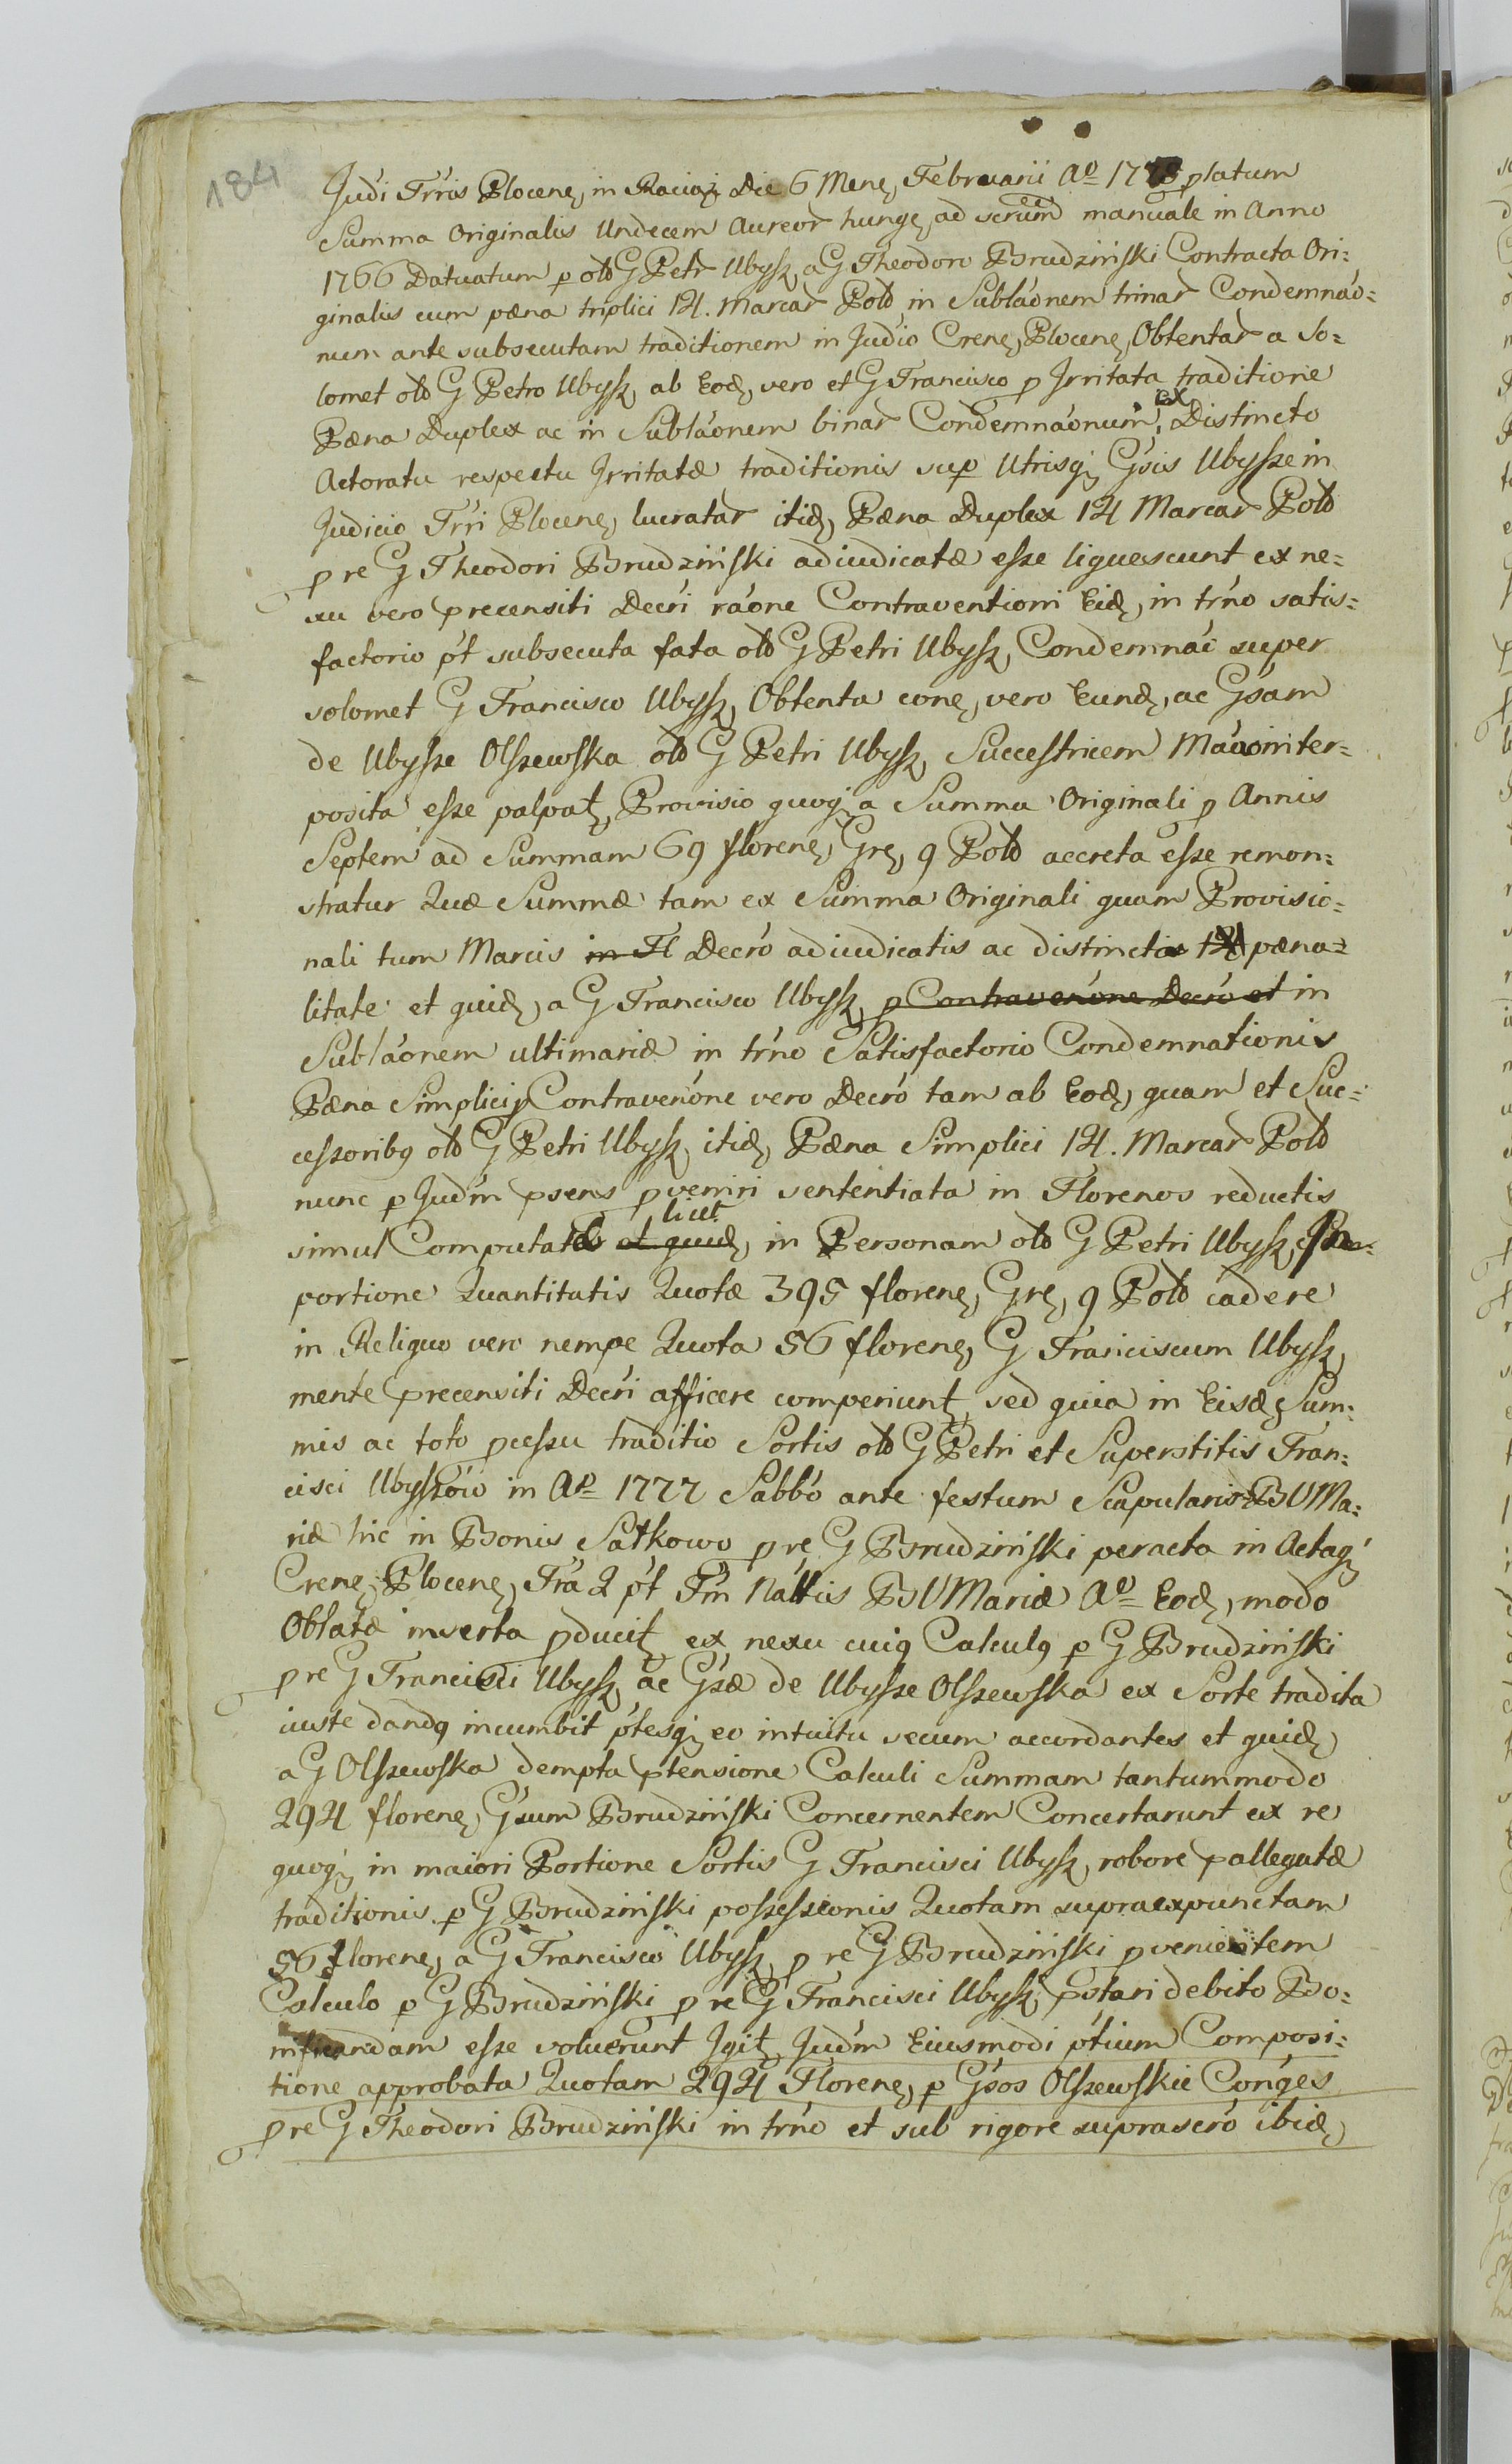 184
Judi Trris Plocen, in Raciąż Die 6 Mens, Februarii Ao 177 platum
Summa Originalis Undecem Aureor hung, ad scrum manuale in Anno
1766 Datuatum p olb G Petr Ubysz, a G Theodoro Brudziński Contracta Ori=
ginalis cum pæna triplici 14. Marcar Polo in Subláonem trinar Condemnáo=
num ante subsecutam traditionem in Judio Crens, Plocens, Obtentar a So=
lomet olb G Petro Ubysz, ab Eod, vero et G Francisco p Irritata traditione
Pæna Duplex ac in Subláonem binar Condemnáonum, ex Distincto
Actoratu respectu Irritatæ traditionis sup Utrisq Gsis Ubysze in
Judicio Trri Plocens, lucratar itid, Pæna Duplex 14 Marcar Polo
p re G Theodori Brudziński adiudicatæ esse liquescunt ex ne=
xu vero precensiti Decri ráone Contraventioni Eid, in trno satis=
factorio pt subsecuta fata olb G Petri Ubysz, Condemnái super
solomet G Francisco Ubysz, Obtenta cone, vero Eund, ac Gsam
de Ubysze Olszewska olb G Petri Ubysz, Succestricem interposita
posita esse palpat, Provisio quoq a Summa Originali p Annis
Septem ad Summam 69 florene, Gre, 9 Polo accreta esse remon=
stratur Quæ Summæ tam ex Summa Originali quam Provisio=
nali tum Marcis in Fl Decro adiudicatis ac distincta pæna=
litate et quid, a G Francisco Ubysz, p Contravenone Decro et in
Subláonem ultimariæ in trno Satisfactorio Condemnationis
Pæna Simplici p Contravenone vero Decro tam ab Eod, quam et Suc=
cessoribq olb G Petri Ubysz, itid, Pæna Simplici 14. Marcar Polo
nunc p Judm psens pveniri sententiata in Florenos reductis
licet
simul Computatis et quid, in Personam olb G Petri Ubysz,
portione Quantitatis Quotæ 395 florene, Gre, 9 Polo cadere
in Reliquo vero nempe Quota 56 florene, G Franciscum Ubysz,
mente precensiti Decri afficere comperiunt, sed quia in Eisd, Sum=
mis ac toto pcessu traditio Sortis olb G Petri et Superstitis Fran=
cisci Ubyszów in Ao 1777 Sabbo ante festum Scapularis BVMa=
riæ hic in Bonis Satkowo p re G Brudziński peracta in Actaq
Crens, Plocens, Fra 2 pt Fm Nattis BVMariæ Ao Eod, modo
Oblatæ inserta pducit, ex nexu cuiq Calculq p G Brudziński
p re G Francisci Ubysz, ac Gsæ de Ubysze Olszewska ex Sorte tradita
iuste dandq incumbit ptesq eo intuitu secum accordantes et quid,
a G Olszewska dempta ptensione Calculi Summam tantummodo
294 florene, Gsum Brudziński Concernentem Concertarunt ex re
quoq in maiori Portione Sortis G Francisci Ubysz, robore pallegatæ
traditionis p G Brudziński possessionis Quotam supraexpunctam
56 florene, a G Francisco Ubysz, p re G Brudziński pvenientem
Calculo p G Brudziński p re G Francisci Ubysz, pstari debito Bo=
nificandam esse voluerunt Igit, Judm Eiusmodi ptium Composi=
tione approbata Quotam 294 Florene, p Gsos Olszewskie Cónges
p re G Theodori Brudziński in trno et sub rigore suprascro ibid,